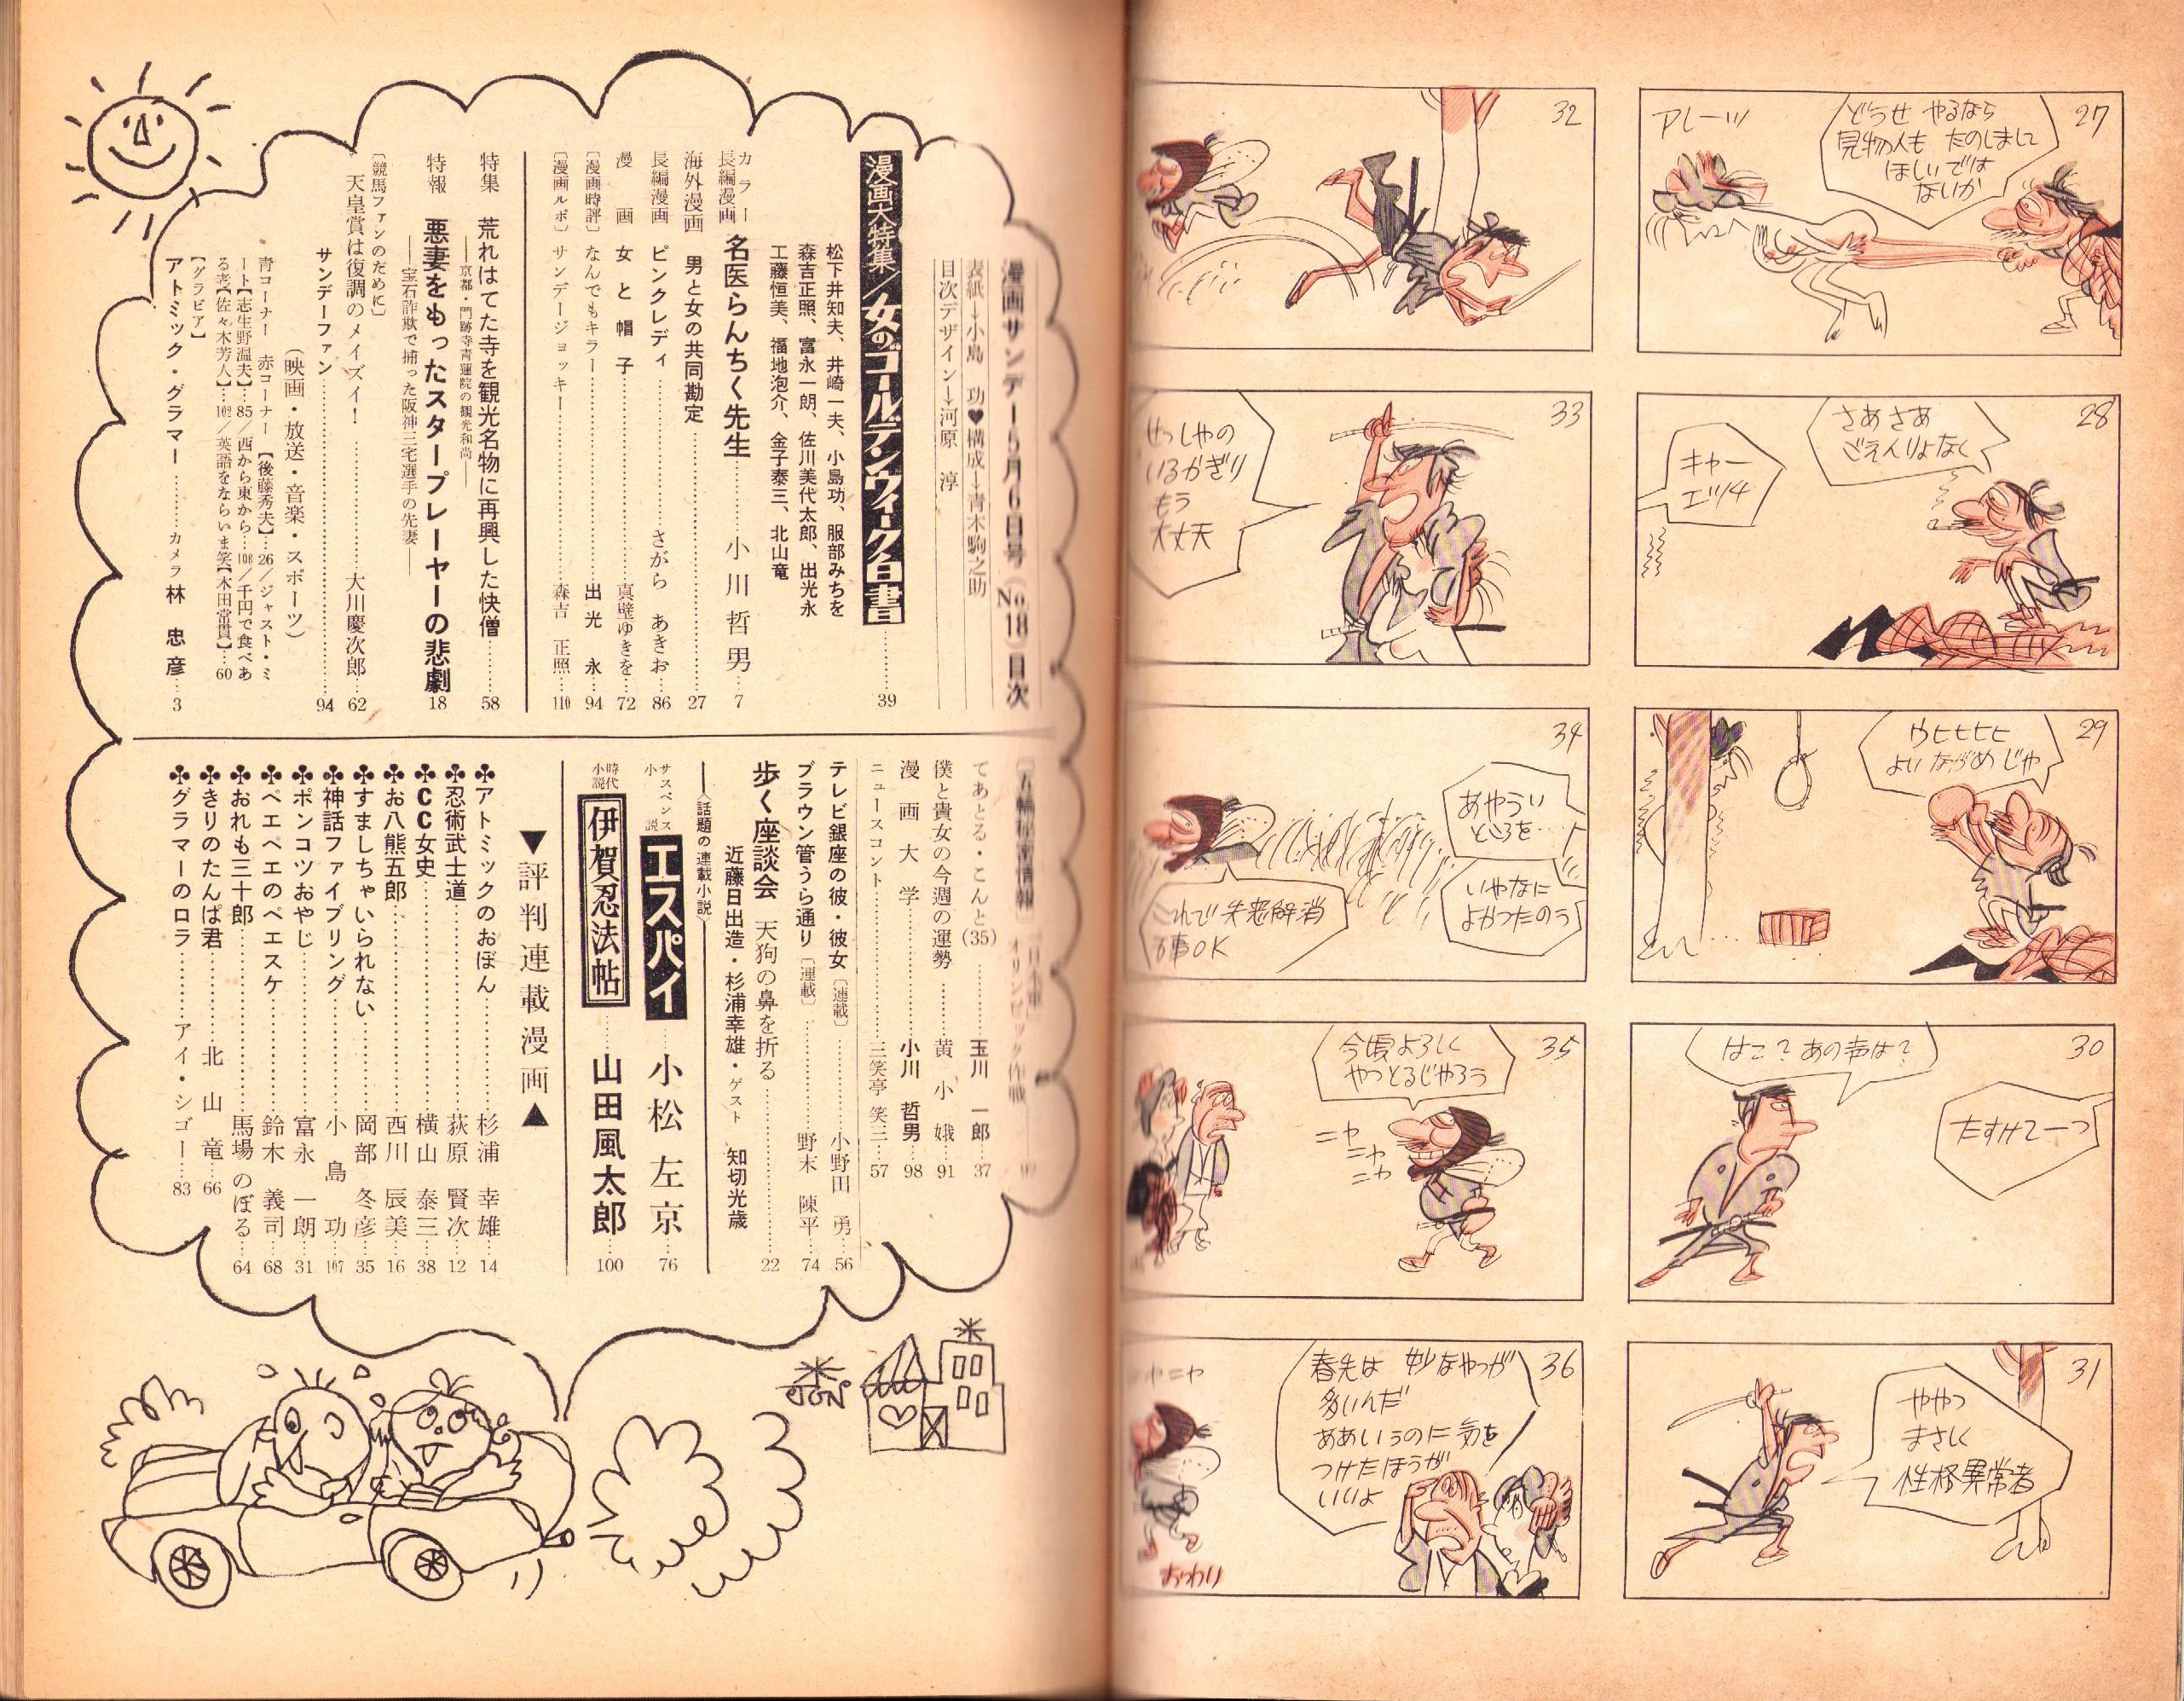 27
どうせ やるなら
見物人も たのしまして
ほしいでは
ないか
アレーッ
28
さあさあ
ごえんりょなく
キャー
エッチ
29
ウヒヒヒヒ
よい ながめじゃ
30
はて? あの声は?
たすけてーっ
31
ややっ
まさしく
性格異常者
32
33
せっしゃの
いるかぎり
もう
大丈夫
34
あやうい
ところを…
いやなに
よかったのう
35
今頃よろしく
やっとるじゃろう
ニヤ
ニヤ
ニヤ
36
春先は 妙なやつが
多いんだ
ああいうのに 気を
つけたほうが
いいよ
ニヤニヤ
おわり
漫画サンデー5月6日号(No.18)目次
表紙→小島 功♥構成→青木駒之助
目次デザイン→河原 淳
漫画大特集/女のゴールデンウィーク白書………39
松下井知夫、井崎一夫、小島功、服部みちを
森吉正照、富永一朗、佐川美代太郎、出光永
工藤恒美、福地泡介、金子泰三、北山竜
カラー
長編漫画 名医らんちく先生………小川哲男…7
海外漫画 男と女の共同勘定………27
長編漫画 ピンクレディ………さがら あきお…86
漫画 女と帽子………真壁ゆきを…72
[漫画時評] なんでもキラー………出光 永…94
[漫画ルポ] サンデージョッキー………森吉 正照…110
特集 荒れはてた寺を観光名物に再興した快僧………58
――京都・門跡寺青蓮院の観光和尚――
特報 悪妻をもったスタープレーヤーの悲劇 18
――宝石詐欺で捕った阪神三宅選手の先妻――
[競馬ファンのために]
天皇賞は復調のメイズイ!………大川慶次郎…62
(映画・放送・音楽・スポーツ)
サンデーファン………94
青コーナー 赤コーナー【後藤秀夫】…26/ジャスト・ミ
ート【志生野温夫】…85/西から東から…108/千円で食べあ
る考【佐々木芳人】…102/英語をならいま笑【木田常貫】…60
【グラビア】
アトミック・グラマー………カメラ 林 忠彦…3
てあとる・こんと(35)………玉川 一郎…37
僕と貴女の今週の運勢………黄 小 娥…91
漫画大学………小川 哲男…98
ニュースコント………三笑亭 笑三…57
テレビ銀座の彼・彼女[連載]………小野田 勇…56
ブラウン管うら通り[連載]………野末 陳平…74
歩く座談会 天狗の鼻を折る………22
近藤日出造・杉浦幸雄・ゲスト 知切光歳
〈話題の連載小説〉
サスペンス小説 エスパイ………小松左京…76
時代小説 伊賀忍法帖………山田風太郎…100
▼評判連載漫画▲
♣アトミックのおぼん………杉浦 幸雄…14
♣忍術武士道………荻原 賢次…12
♣CC女史………横山 泰三…38
♣お八熊五郎………西川 辰美…16
♣すましちゃいられない………岡部 冬彦…35
♣神話ファイブリング………小島 功…107
♣ポンコツおやじ………富永 一朗…31
♣ペエペエのペエスケ………鈴木 義司…68
♣おれも三十郎………馬場 のぼる…64
♣きりのたんぱ君………北山 竜…66
♣グラマーのロラ………アイ・シゴー…83